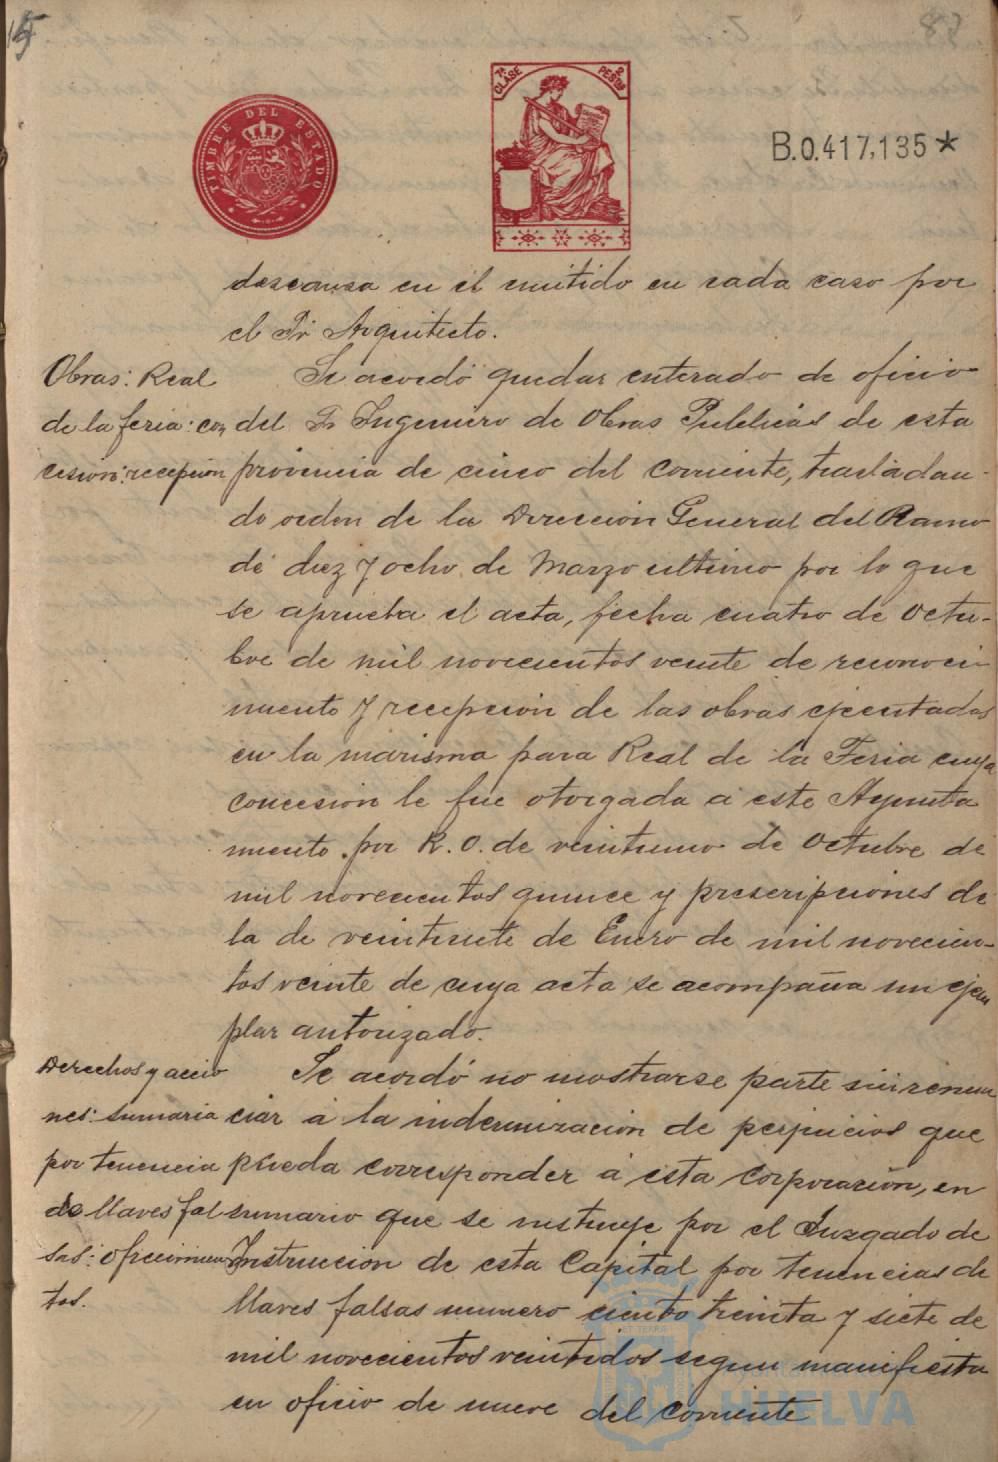 15
TIMBRE DEL ESTADO
7ª CLASE
2 PESTAS
B.0.417,135*
descansa en el emitido en cada caso por
el Sr Arquitecto.
Obras: Real
de la feria: con
cesión: recepción
Se acordó quedar enterado de oficio
del Sr Ingeniero de Obras Publicas de esta
provincia de cinco del corriente, trasladan-
do orden de la Dirección General del Ramo
de diez y ocho de Marzo ultimo por lo que
se aprueba el acta, fecha cuatro de Octu-
bre de mil novecientos veinte de reconoci-
miento y recepcion de las obras ejecutadas
en la marisma para Real de la Feria cuya
concesión le fue otorgada a este Ayunta
miento por R.O. de veintiuno de Octubre de
mil novecientos quince y prescripciones de
la de veintisiete de Enero de mil novecien-
tos veinte de cuya acta se acompaña un ejem
plar autorizado.
Derechos y accio
nes: sumaria
por tenencia
de llaves fal
sas: ofrecimien
tos.
Se acordó no mostrarse parte sin renun
ciar á la indemnización de perjuicios que
pueda corresponder á esta Corporación, en
sumario que se instruye por el Juzgado de
Instrucción de esta Capital por tenencias de
llaves falsas numero ciento treinta y siete de
mil novecientos veintidos segun manifiesta
en oficio de nueve del corriente
HUELVA